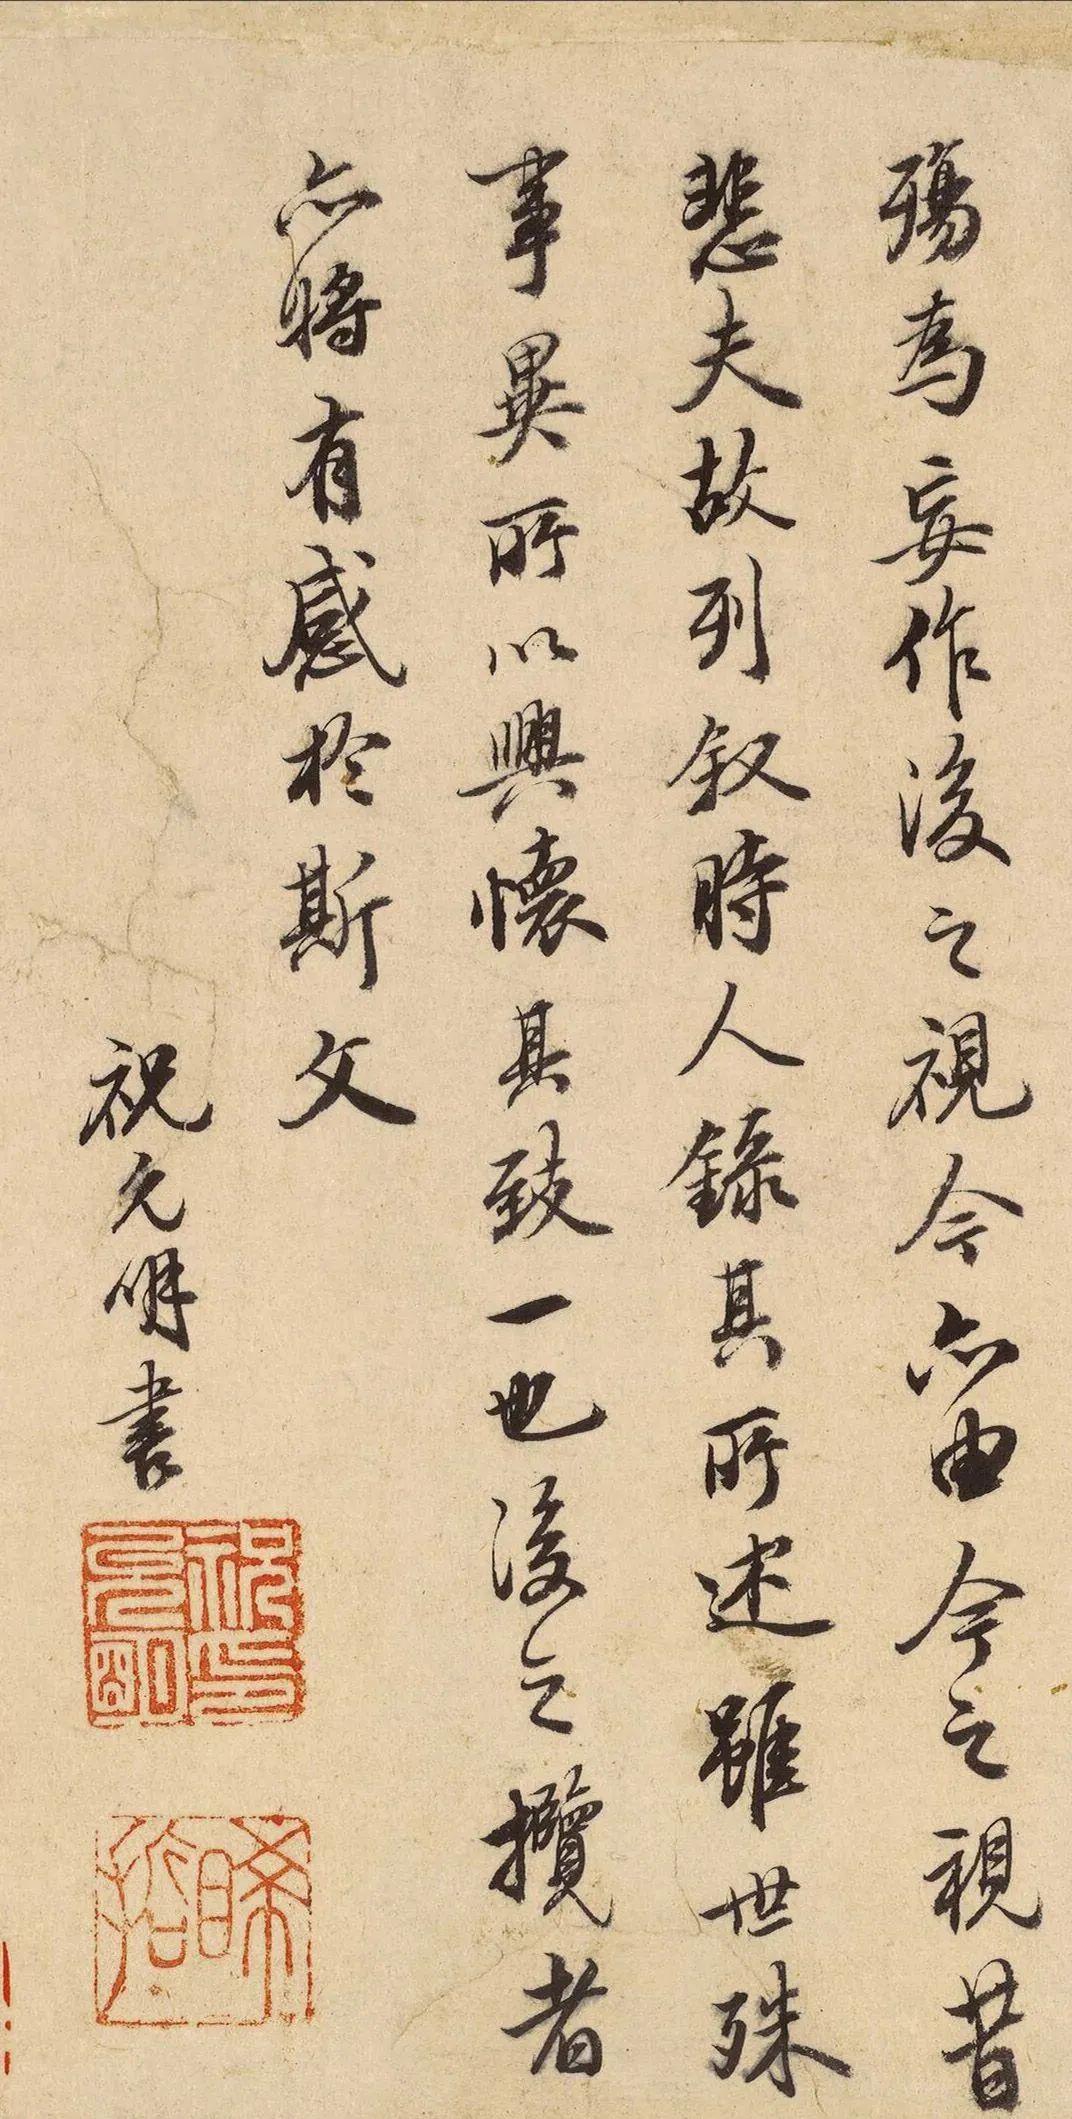 殤為妄作後之視今亦由今之視昔
悲夫故列叙時人錄其所述雖世殊
事異所以興懷其致一也後之攬者
亦將有感於斯文
祝允明書
祝允明印
晞哲